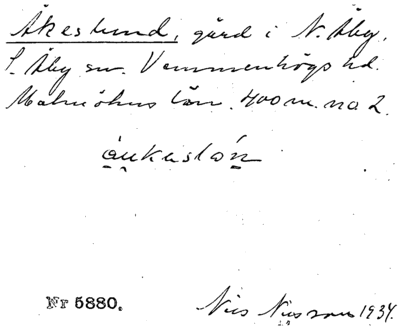 Åkeslund, gård i N. Åby,
S. Åby sn. Vemmenhögs hd.
Malmöhus län. 400 m. na 2.
áukaslón
Nr 5880.
Nils Nilsson 1934.